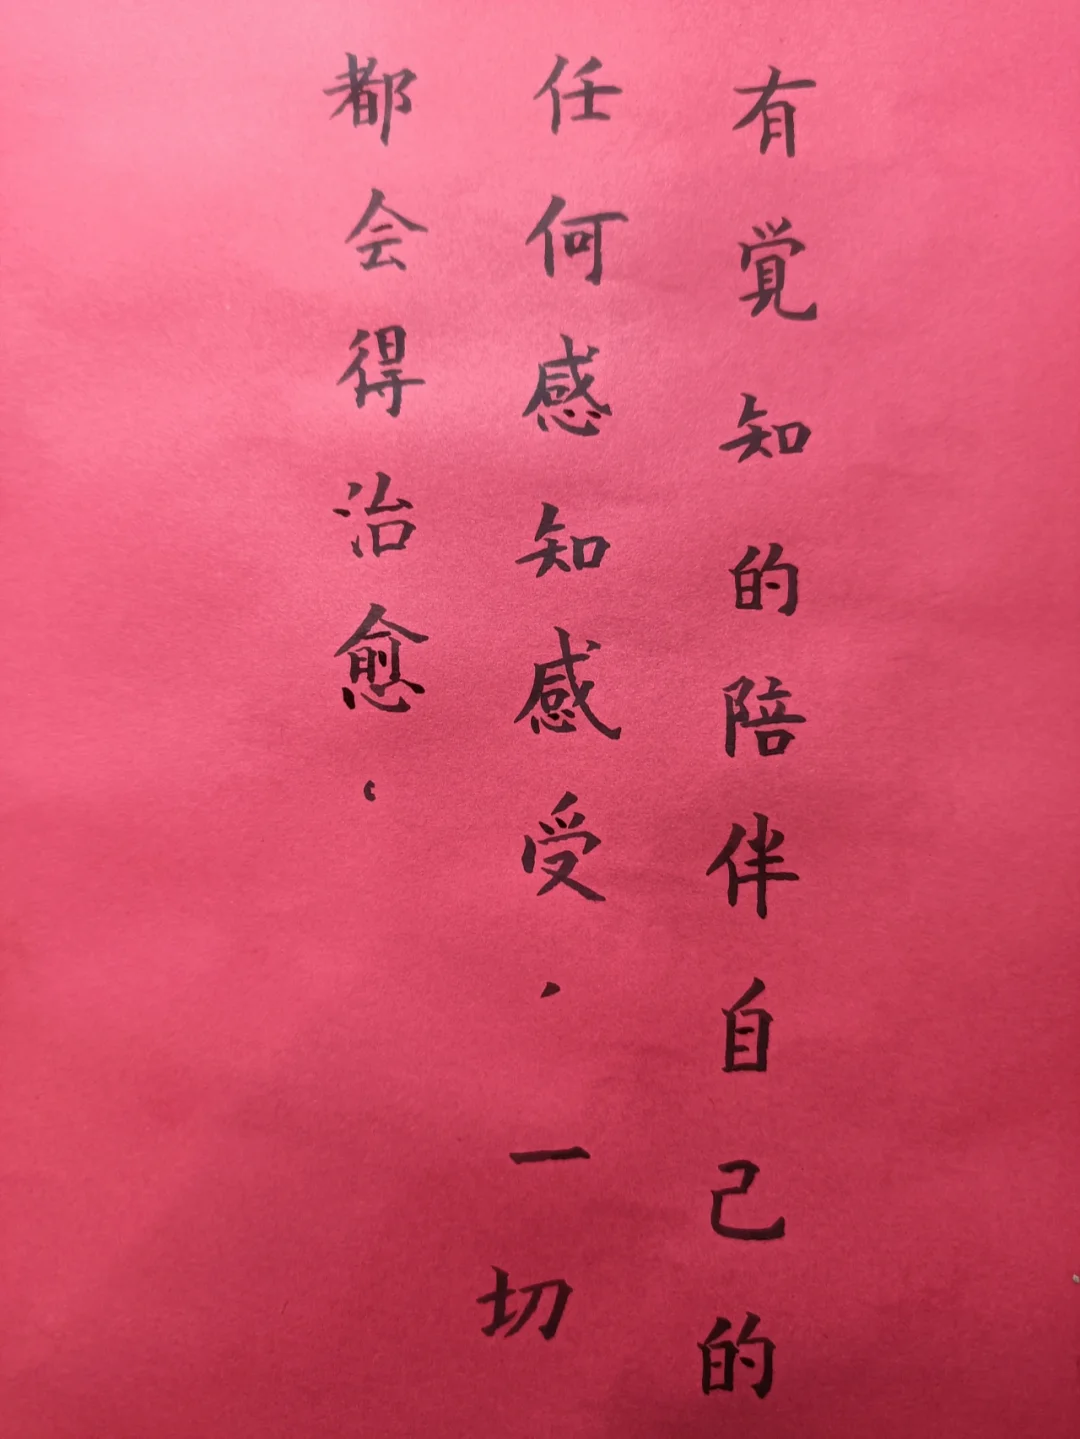 有覚知的陪伴自己的
任何感知感受，一切
都会得治愈。